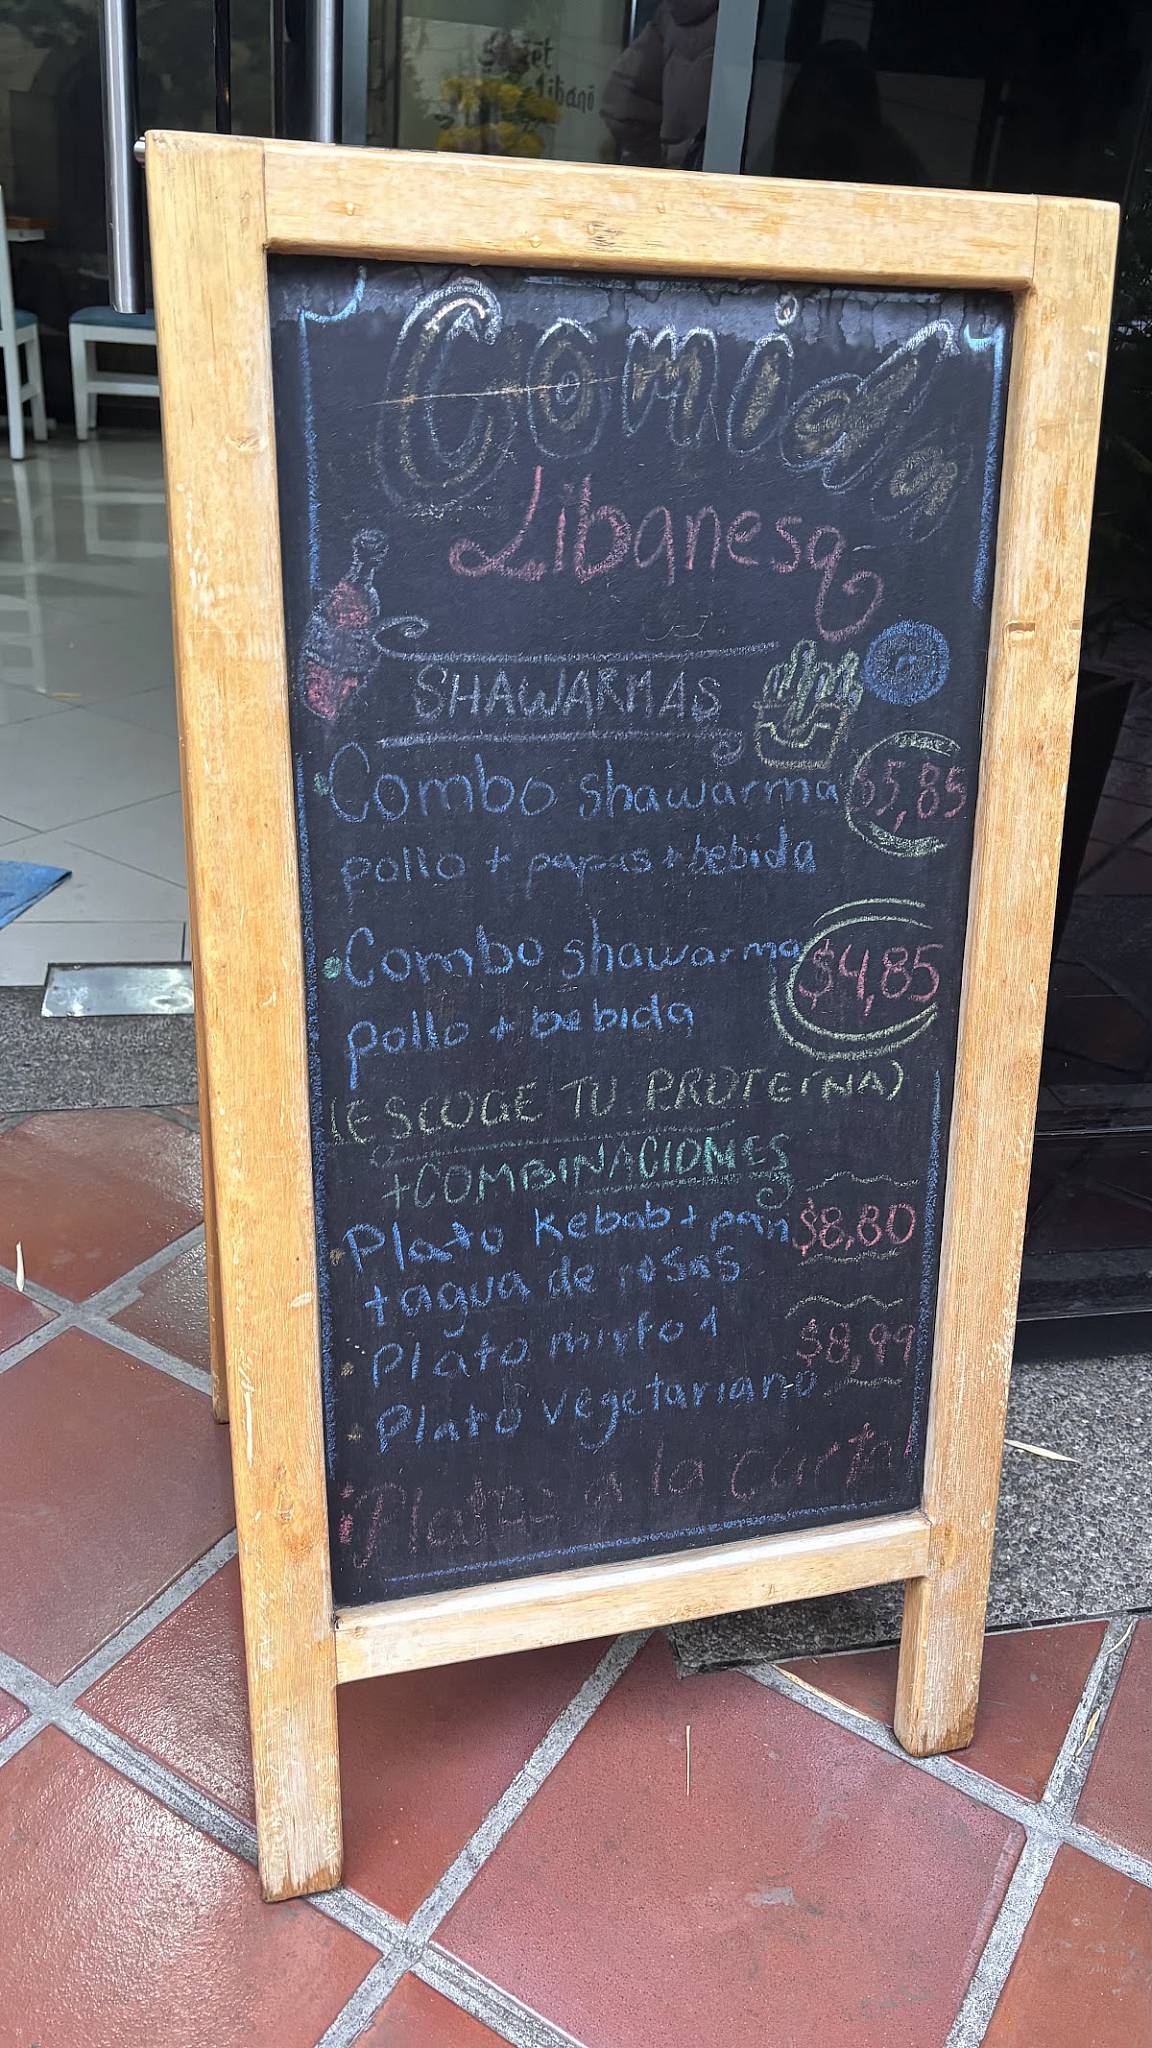 Comida
Libanesa
SHAWARMAS
Combo shawarma $5,85
pollo + papas + bebida
Combo shawarma $4,85
pollo + bebida
(ESCOGE TU PROTEÍNA)
+COMBINACIONES
Plato kebab + pan $8,80
+ agua de rosas
Plato mixto 1 $8,99
Plato vegetariano
Platos a la carta